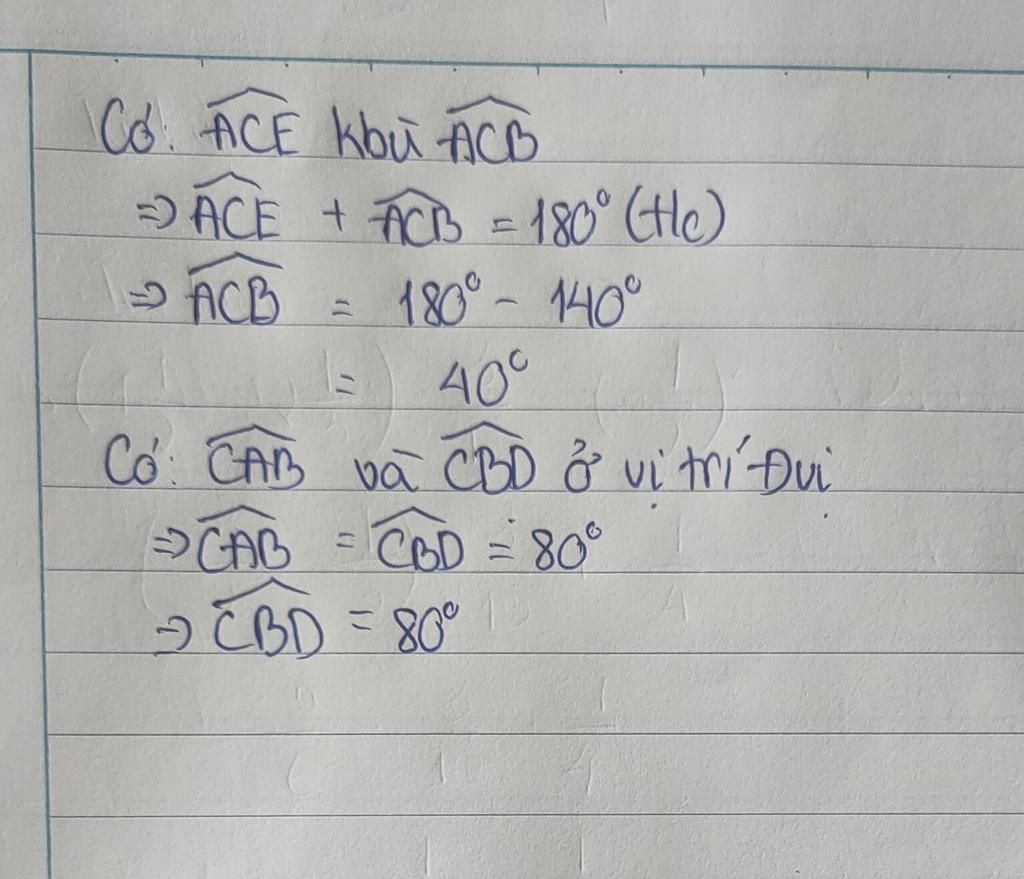 Có: ACE kbù ACB
⇒ ACE + ACB = 180° (Hc)
⇒ ACB = 180° - 140°
= 40°
Có: CAB và CBD ở vị trí Đvị
⇒ CAB = CBD = 80°
⇒ CBD = 80°